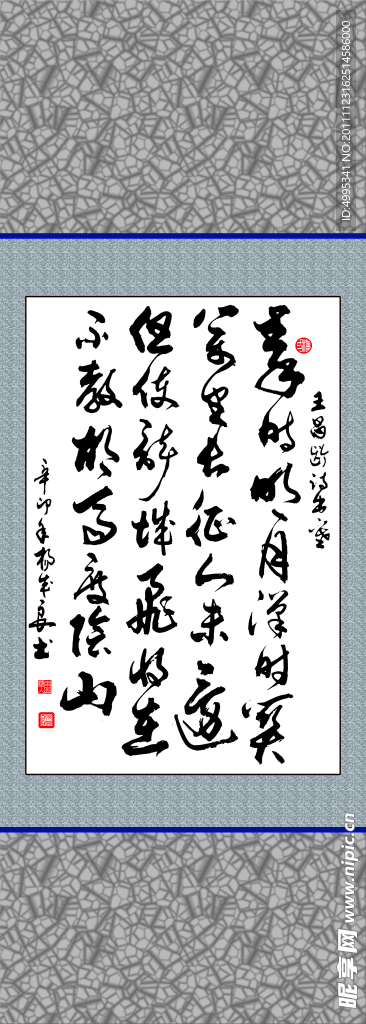 王昌龄诗出塞
秦时明月汉时关
万里长征人未还
但使龙城飞将在
不教胡马度阴山
辛卯年杨成良书
ID:4995341 NO:20111123162514586000
昵享网 www.nipic.cn